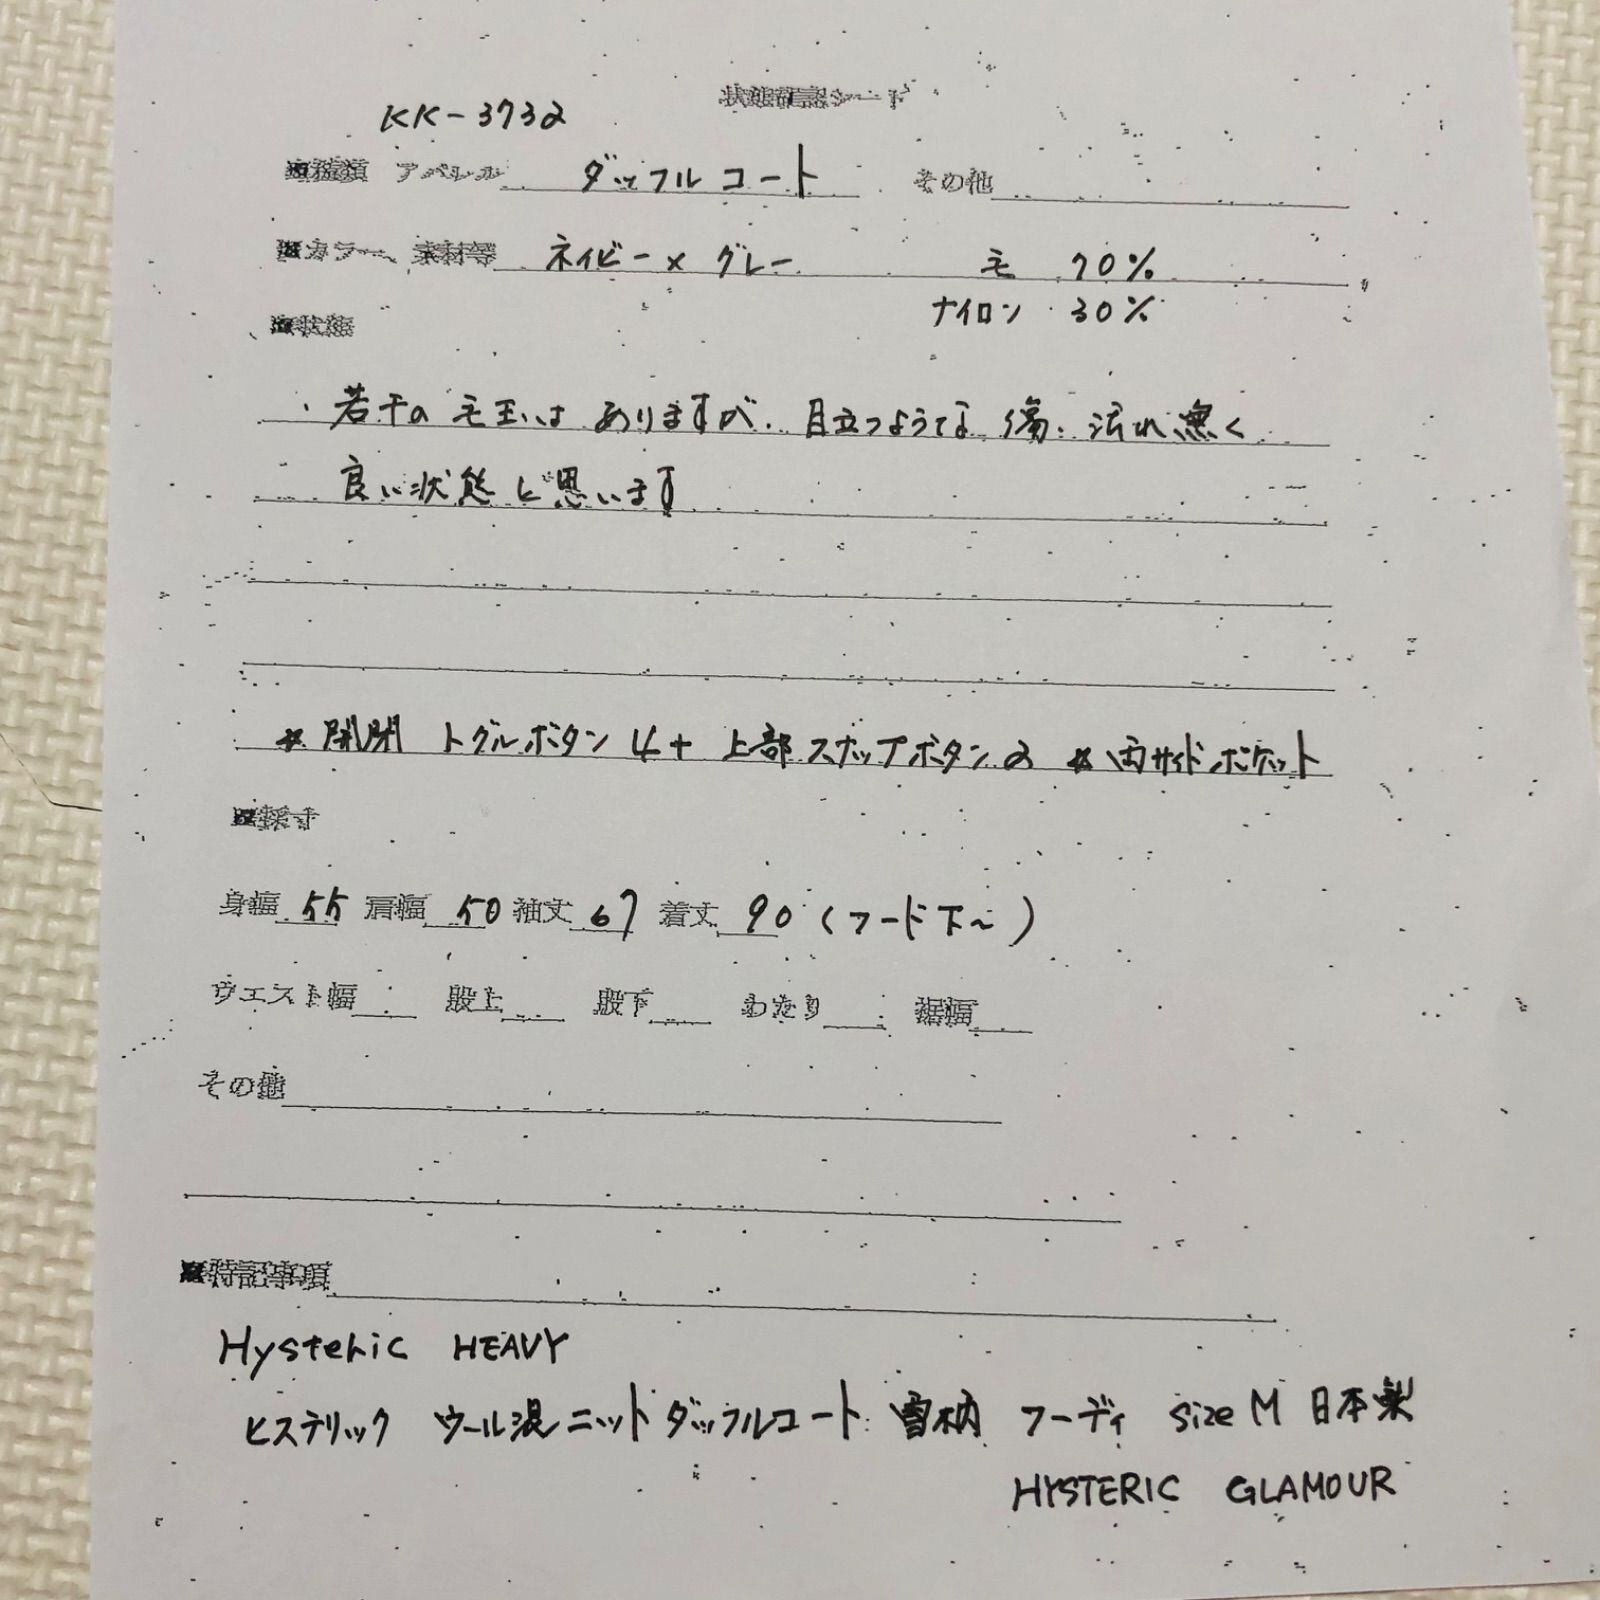 状態確認シート
KK-3732
■種類 アパレル ダッフルコート その他
■カラー、素材等 ネイビー×グレー 毛 70%
ナイロン 30%
■状態
・若干の毛玉はありますが、目立つような傷、汚れ無く
良い状態と思います
* 開閉 トグルボタン4+上部スナップボタン2 * 両サイドポケット
■採寸
身幅 55 肩幅 50 袖丈 67 着丈 90 (フード下～)
ウエスト幅 股上 股下 わたり 裾幅
その他
■特記事項
Hysteric HEAVY
ヒステリック ウール混ニットダッフルコート 雪柄 フーディ size M 日本製
HYSTERIC GLAMOUR